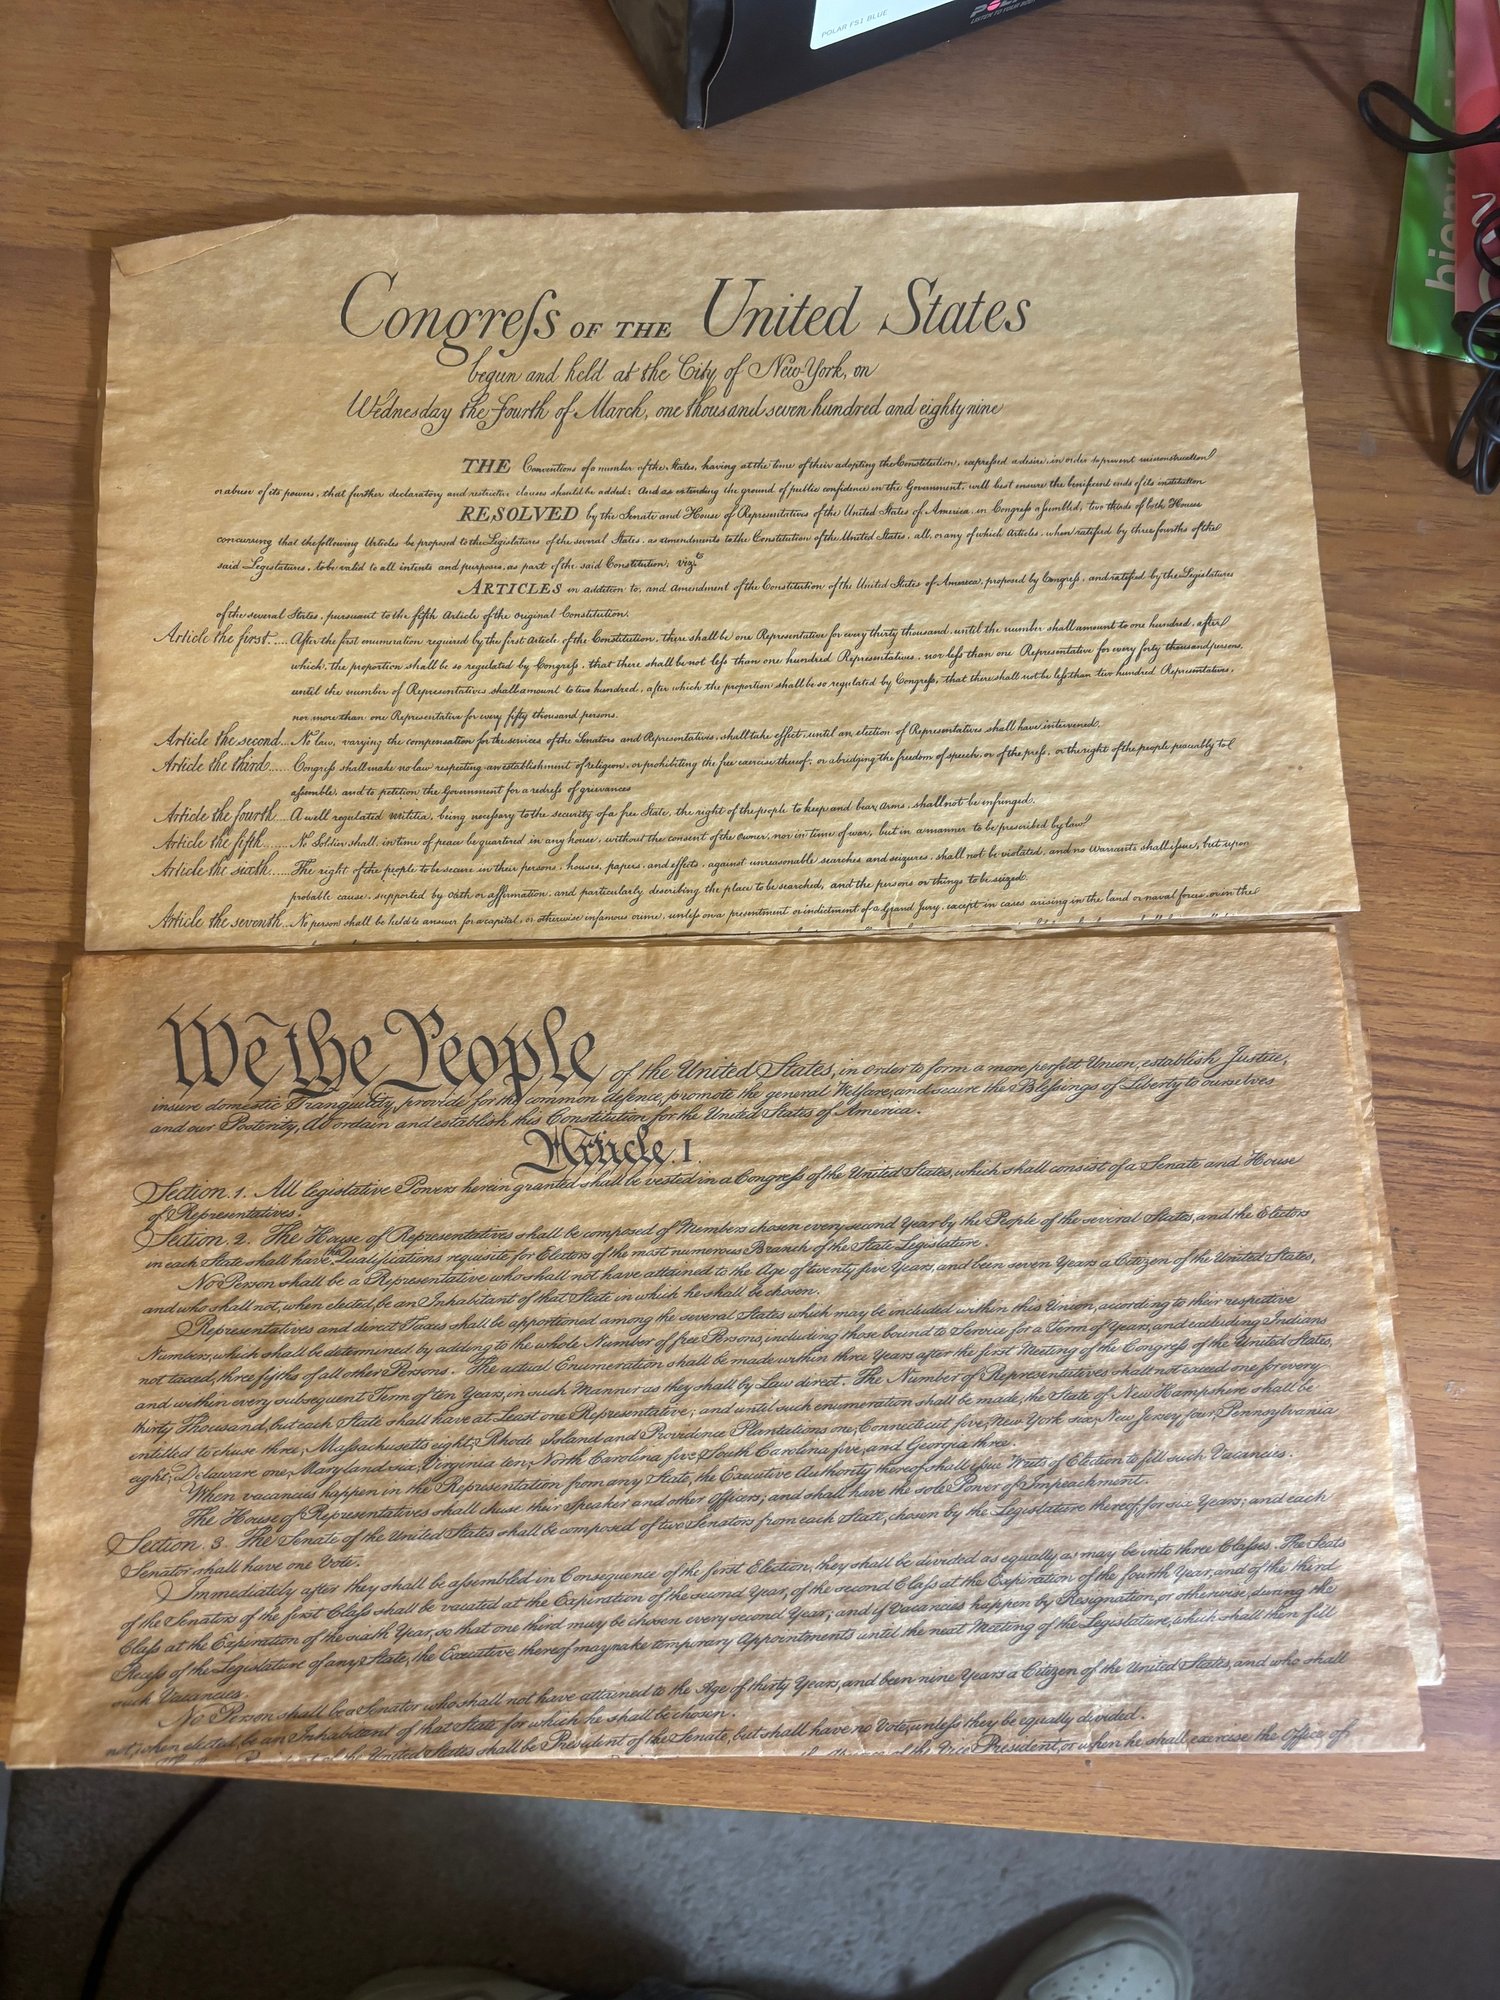 POLAR FS1 BLUE
LISTEN TO YOUR BODY
Congreſs OF THE United States
begun and held at the City of New-York, on
Wednesday the fourth of March, one thousand seven hundred and eighty nine
THE Conventions of a number of the States, having at the time of their adopting the Constitution, expreſsed a desire, in order to prevent misconstruction
or abuse of its powers, that further declaratory and restrictive clauses should be added: And as extending the ground of public confidence in the Government, will best ensure the benificent ends of its institution
RESOLVED by the Senate and House of Representatives of the United States of America, in Congreſs aſsembled, two thirds of both Houses
concurring that the following Articles be proposed to the Legislatures of the several States, as amendments to the Constitution of the United States, all, or any of which Articles, when ratified by three fourths of the
said Legislatures, to be valid to all intents and purposes, as part of the said Constitution; vizt
ARTICLES in addition to, and Amendment of the Constitution of the United States of America, proposed by Congreſs, and ratified by the Legislatures
of the several States, pursuant to the fifth Article of the original Constitution.
Article the first..... After the first enumeration required by the first Article of the Constitution, there shall be one Representative for every thirty thousand, until the number shall amount to one hundred, after
which, the proportion shall be so regulated by Congreſs, that there shall be not leſs than one hundred Representatives, nor leſs than one Representative for every forty thousand persons,
until the number of Representatives shall amount to two hundred, after which the proportion shall be so regulated by Congreſs, that there shall not be leſs than two hundred Representatives,
nor more than one Representative for every fifty thousand persons.
Article the second... No law, varying the compensation for the services of the Senators and Representatives, shall take effect, until an election of Representatives shall have intervened.
Article the third...... Congreſs shall make no law respecting an establishment of religion, or prohibiting the free exercise thereof, or abridging the freedom of speech, or of the preſs, or the right of the people peaceably to
aſsemble, and to petition the Government for a redreſs of grievances
Article the fourth.... A well regulated militia, being neceſsary to the security of a free State, the right of the people to keep and bear arms, shall not be infringed.
Article the fifth........ No Soldier shall, in time of peace be quartered in any house, without the consent of the owner, nor in time of war, but in a manner to be prescribed by law
Article the sixth...... The right of the people to be secure in their persons, houses, papers, and effects, against unreasonable searches and seizures, shall not be violated, and no warrants shall iſsue, but upon
probable cause, supported by oath or affirmation, and particularly describing the place to be searched, and the persons or things to be seized.
Article the seventh... No person shall be held to answer for a capital, or otherwise infamous crime, unleſs on a presentment or indictment of a Grand Jury, except in cases arising in the land or naval forces, or in the
We the People of the United States, in order to form a more perfect Union, establish Justice,
insure domestic Tranquility, provide for the common defence, promote the general Welfare, and secure the Bleſsings of Liberty to ourselves
and our Posterity, do ordain and establish this Constitution for the United States of America.
Article. I.
Section. 1. All legislative Powers herein granted shall be vested in a Congreſs of the United States, which shall consist of a Senate and House
of Representatives.
Section. 2. The House of Representatives shall be composed of Members chosen every second Year by the People of the several States, and the Electors
in each State shall have the Qualifications requisite for Electors of the most numerous Branch of the State Legislature.
No Person shall be a Representative who shall not have attained to the Age of twenty five Years, and been seven Years a Citizen of the United States,
and who shall not, when elected, be an Inhabitant of that State in which he shall be chosen.
Representatives and direct Taxes shall be apportioned among the several States which may be included within this Union, according to their respective
Numbers, which shall be determined by adding to the whole Number of free Persons, including those bound to Service for a Term of Years, and excluding Indians
not taxed, three fifths of all other Persons. The actual Enumeration shall be made within three Years after the first Meeting of the Congreſs of the United States,
and within every subsequent Term of ten Years, in such Manner as they shall by Law direct. The Number of Representatives shall not exceed one for every
thirty Thousand, but each State shall have at Least one Representative; and until such enumeration shall be made, the State of New Hampshire shall be
entitled to chuse three, Maſsachusetts eight, Rhode Island and Providence Plantations one, Connecticut five, New York six, New Jersey four, Pennsylvania
eight, Delaware one, Maryland six, Virginia ten, North Carolina five, South Carolina five, and Georgia three.
When vacancies happen in the Representation from any State, the Executive Authority thereof shall iſsue Writs of Election to fill such Vacancies.
The House of Representatives shall chuse their Speaker and other Officers; and shall have the sole Power of Impeachment.
Section. 3. The Senate of the United States shall be composed of two Senators from each State, chosen by the Legislature thereof, for six Years; and each
Senator shall have one Vote.
Immediately after they shall be aſsembled in Consequence of the first Election, they shall be divided as equally as may be into three Claſses. The Seats
of the Senators of the first Claſs shall be vacated at the Expiration of the second Year, of the second Claſs at the Expiration of the fourth Year, and of the third
Claſs at the Expiration of the sixth Year, so that one third may be chosen every second Year; and if Vacancies happen by Resignation, or otherwise, during the
Receſs of the Legislature of any State, the Executive thereof may make temporary Appointments until the next Meeting of the Legislature, which shall then fill
such Vacancies.
No Person shall be a Senator who shall not have attained to the Age of thirty Years, and been nine Years a Citizen of the United States, and who shall
not, when elected, be an Inhabitant of that State for which he shall be chosen.
of the United States shall be President of the Senate, but shall have no Vote, unleſs they be equally divided.
of the Vice President, or when he shall exercise the Office of